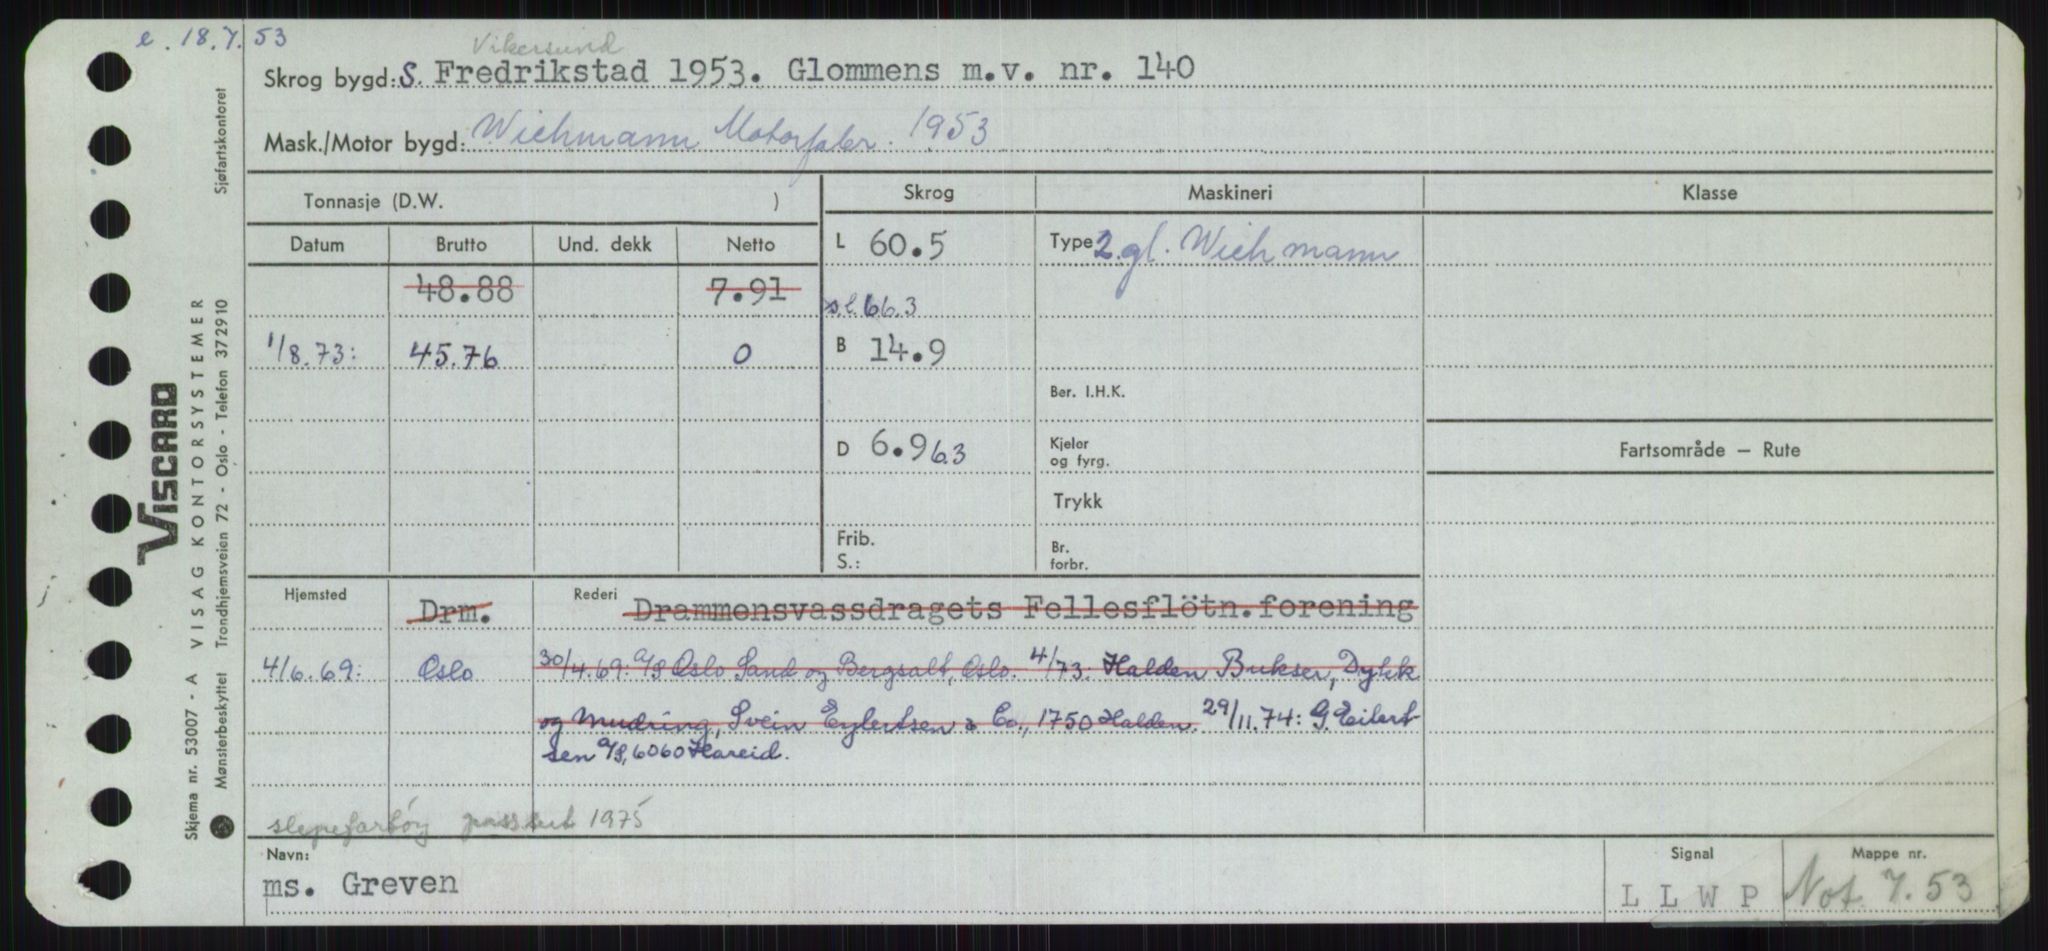 e. 18.7.53
Vikersund
Skrog bygd: S. Fredrikstad 1953. Glommens m.v. nr. 140
Mask./Motor bygd: Wichmann Motorfabr. 1953
Tonnasje (D.W. )
Skrog
Maskineri
Klasse
Datum Brutto Und. dekk Netto
L 60.5
Type 2 gl. Wichmann
48.88 7.91
s.l. 66.3
1/8.73: 45.76 0
B 14.9
Ber. I.H.K.
D 6.9 6.3
Kjeler
og fyrg.
Fartsområde – Rute
Trykk
Frib.
S.:
Br.
forbr.
Hjemsted Drm. Rederi Drammensvassdragets Fellesflötn.forening
4/6.69: Oslo 30/4.69: A/S Oslo Sand og Bergsalt, Oslo. 4/73: Halden Bukser, Dykk
og Mudring, Svein Eylertsen & Co., 1750 Halden. 29/11.74: G. Eilert-
sen A/S, 6060 Hareid.
slepefartöy 1975
Navn:
ms. Greven
Signal
L L W P
Mappe nr.
Not 7.53
Viscard
VISAG KONTORSYSTEMER
Skjema nr. 53007 - A
Mønsterbeskyttet Trondhjemsveien 72 - Oslo - Telefon 372910
Sjøfartskontoret